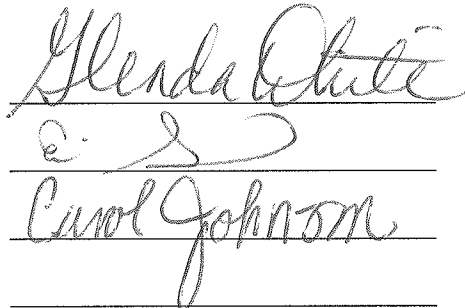 Glenda White
Carol Johnson